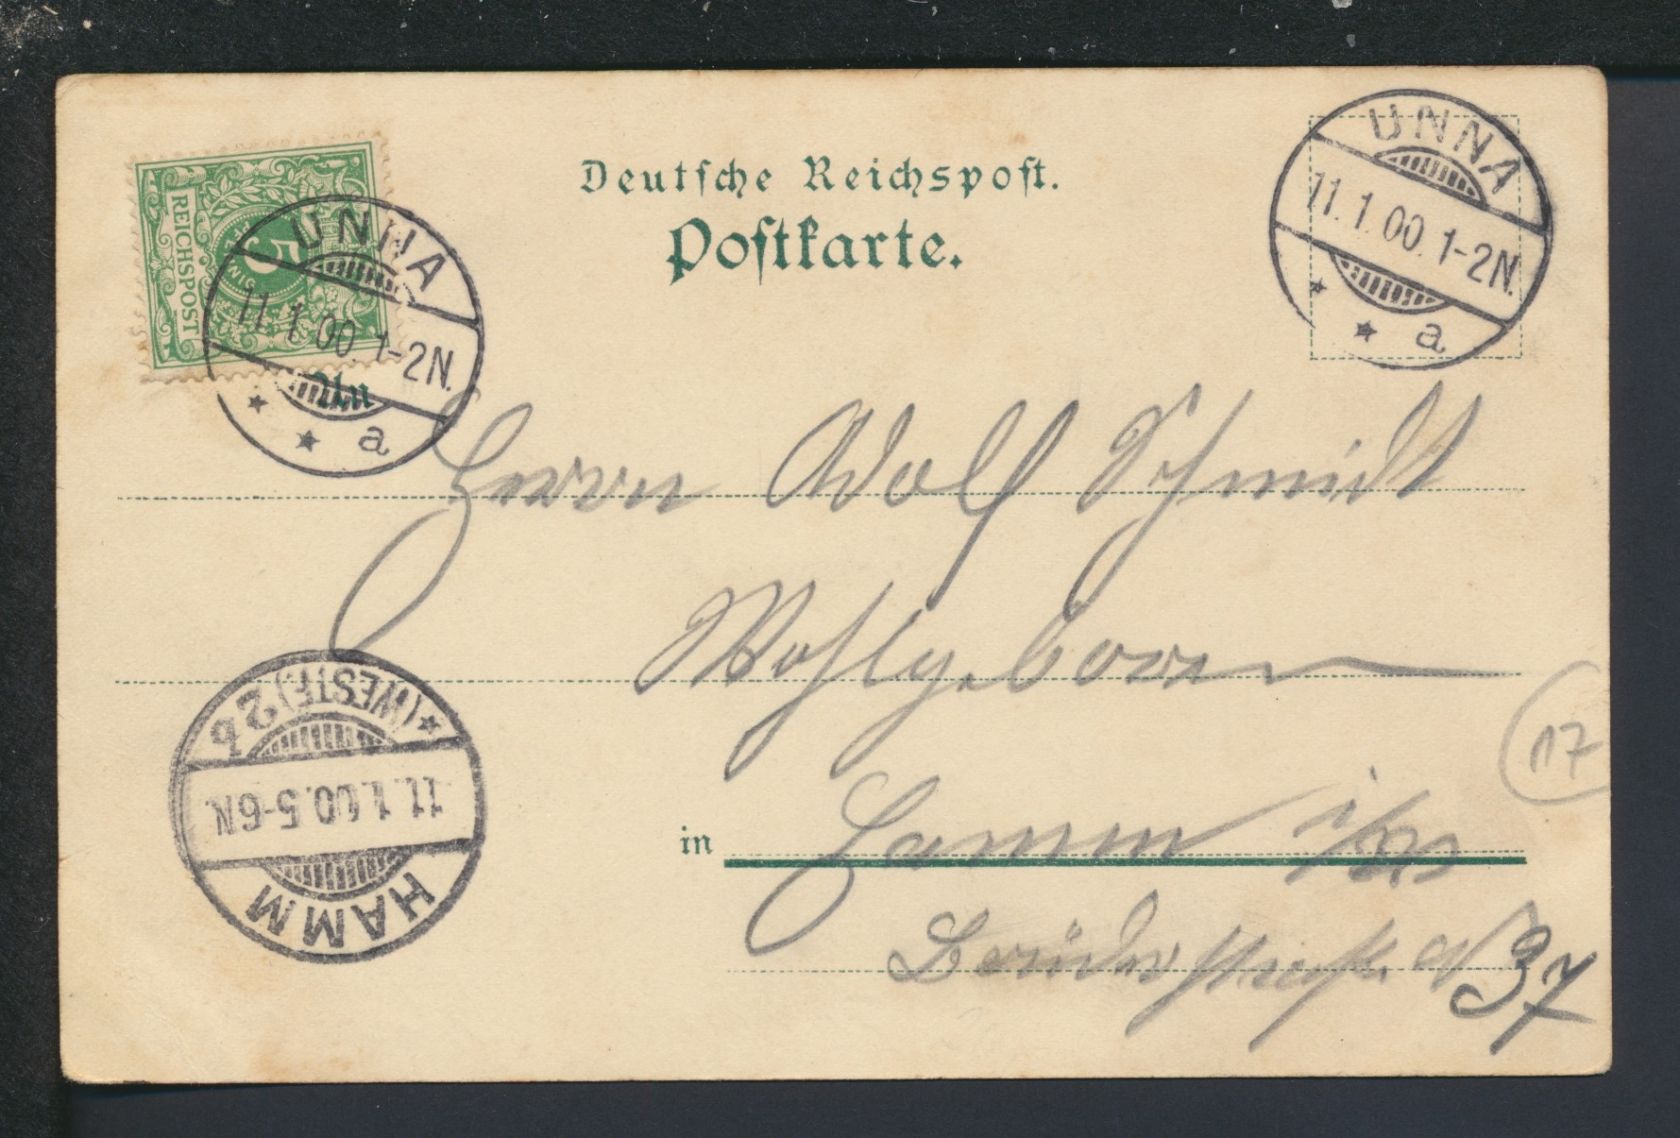 Deutsche Reichspost.
Postkarte.
REICHSPOST
5
UNNA
11.1.00.1-2N.
a
UNNA
11.1.00.1-2N.
a
An
Herrn Adolf Schmidt
Wohlgeboren
in Hamm i/W
Brüderstraße N 37
17
HAMM
11.1.00.5-6N.
(WESTF.) 2b